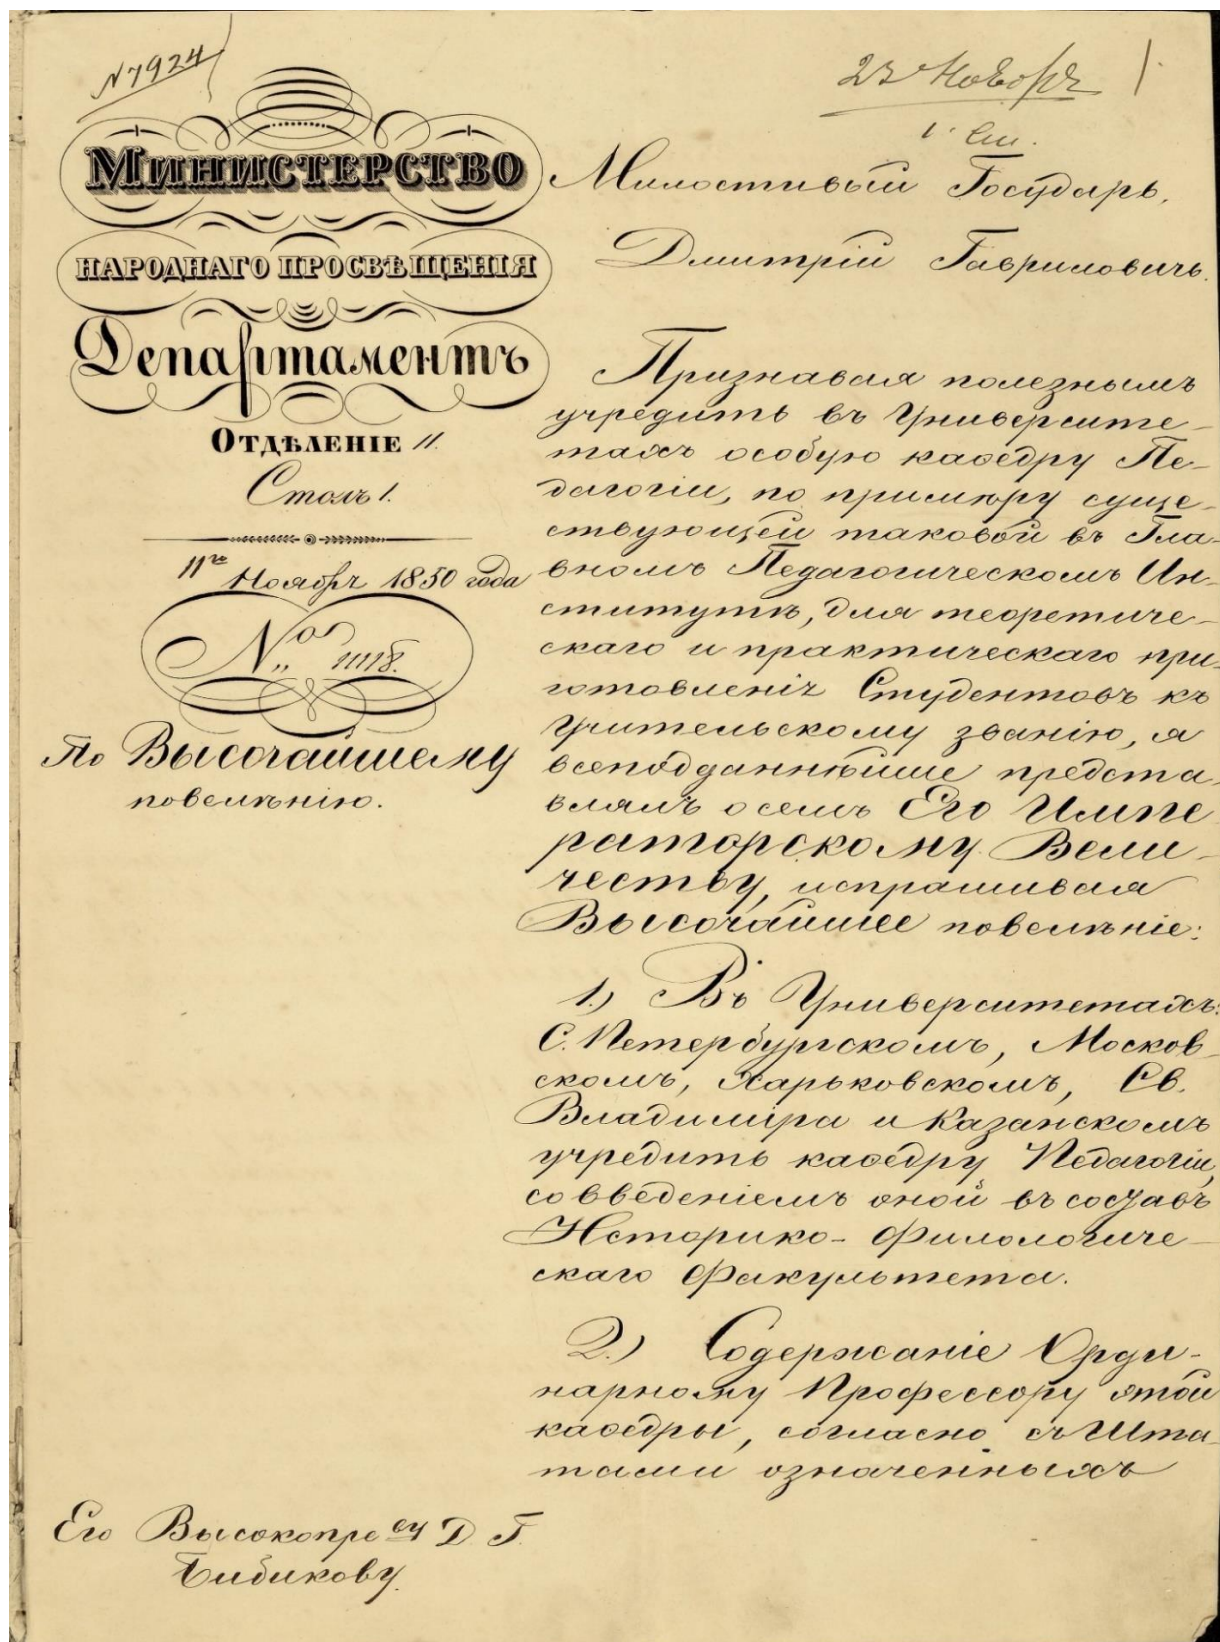 № 7924
23 Ноября
1.
1. Ст.
Министерство
народнаго просвѣщенія
Департаментъ
Отдѣленіе 11.
Столъ 1.
11го Ноября 1850 года
№ 11118.
По Высочайшему
повелѣнію.
Милостивый Государь,
Дмитрій Гавриловичь.
Признавая полезнымъ
учредить въ Университе-
тахъ особую каѳедру Пе-
дагогіи, по примѣру суще-
ствующей таковой въ Гла-
вномъ Педагогическомъ Ин-
ститутѣ, для теоретиче-
скаго и практическаго при-
готовленія Студентовъ къ
учительскому званію, я
всеподданнѣйше предста-
влялъ о семъ Его Импе
раторскому Вели-
честву, испрашивая
Высочайшее повелѣніе:
1.) Въ Университетахъ:
С. Петербургскомъ, Москов-
скомъ, Харьковскомъ, Св.
Владиміра и Казанскомъ
учредить каѳедру Педагогіи,
со введеніемъ оной въ составъ
Историко-Филологиче-
скаго Факультета.
2.) Содержаніе Орди-
нарному Профессору этой
каѳедры, согласно съ Шта-
тами означенныхъ
Его Высокопре ву Д Г.
Бибикову.